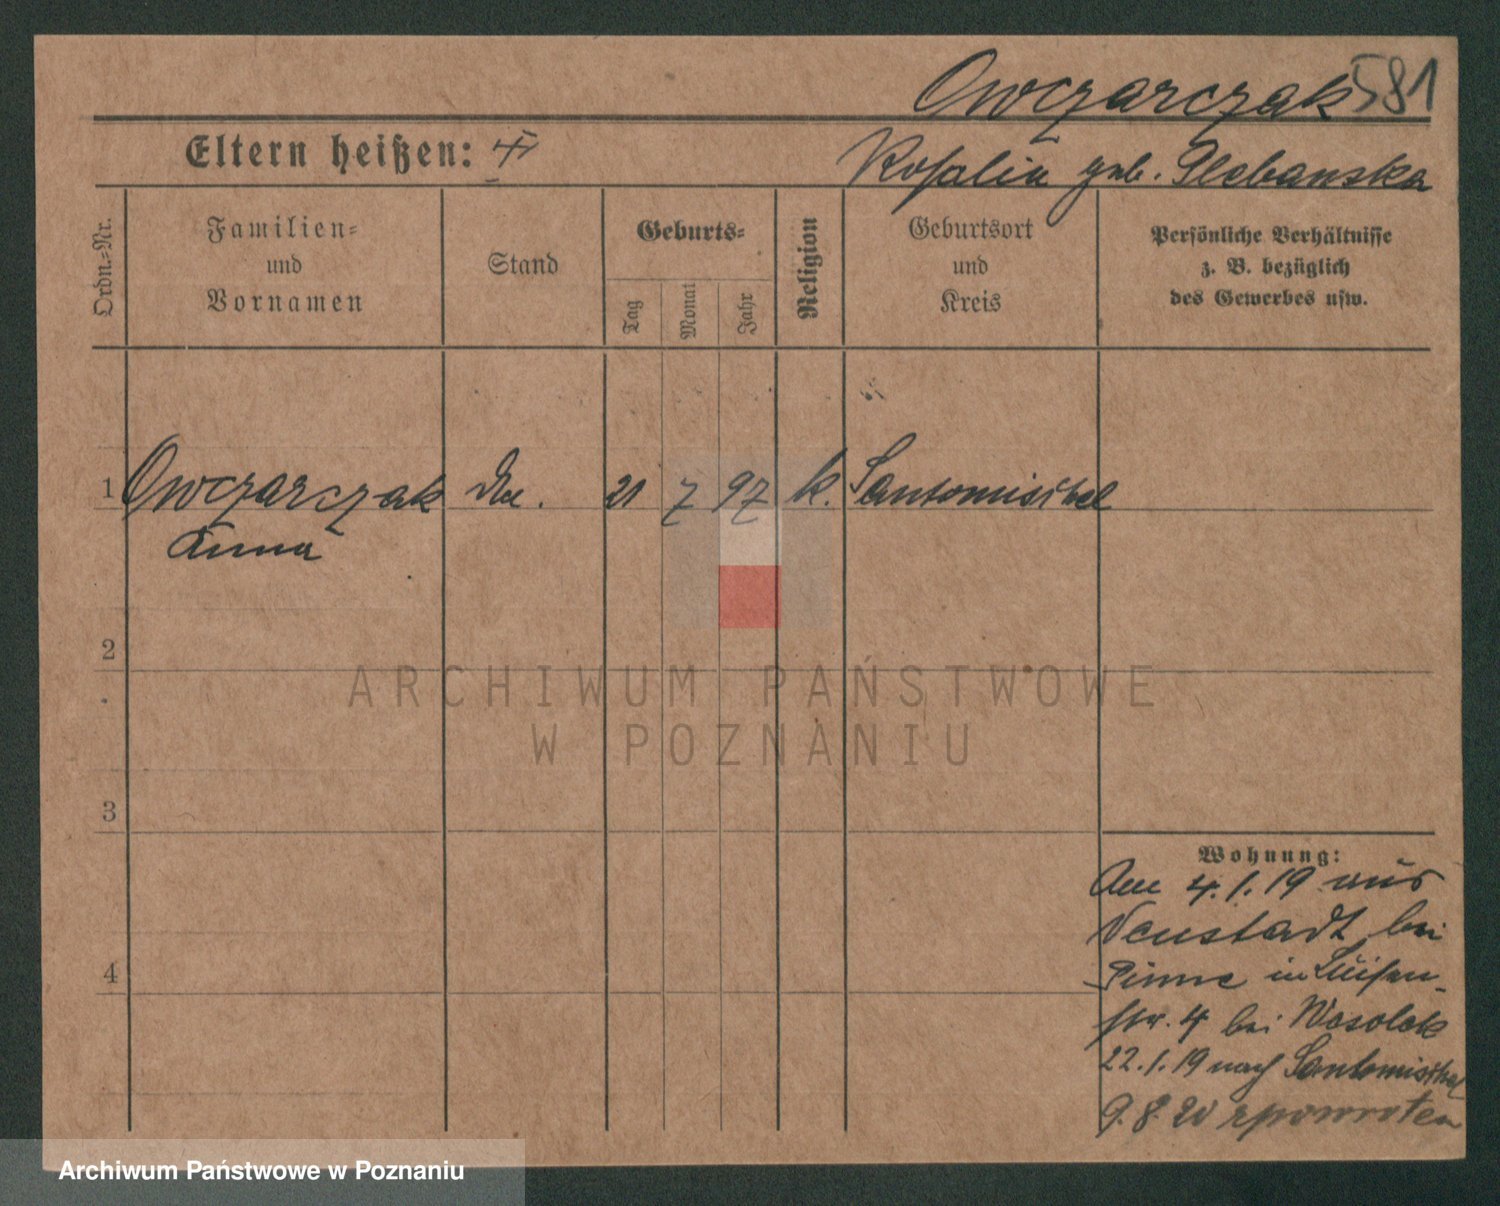 Owczarczak 581
Eltern heißen:
Rosalia geb. Plebanska
Ordn.=Nr.
Familien=
und
Vornamen
Stand
Geburts=
Tag
Monat
Jahr
Religion
Geburtsort
und
Kreis
Persönliche Verhältnisse
z. B. bezüglich
des Gewerbes usw.
1 Owczarczak 21 7 97 k. Santomischel
Anna
2
3
4
ARCHIWUM PAŃSTWOWE
W POZNANIU
Wohnung:
Am 4.1.19 aus
Neustadt bei
Pinne in Luisen-
str. 4 bei Wesolek
22.1.19 nach Santomischel
9.8.20 zpowroten
Archiwum Państwowe w Poznaniu